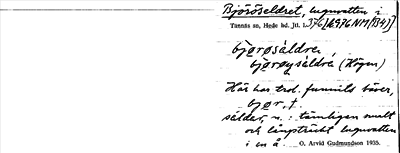 Björöseldret, lugnvatten i
Tännäs sn, Hede hd, Jtl. L.
bjørøsäldre,
bjørøysäldre (Högen)
Här har trol. funnits bäver,
bjør, f.
säldar, n.: tämligen smalt
och långsträckt lugnvatten
i en å O. Arvid Gudmundson 1935.